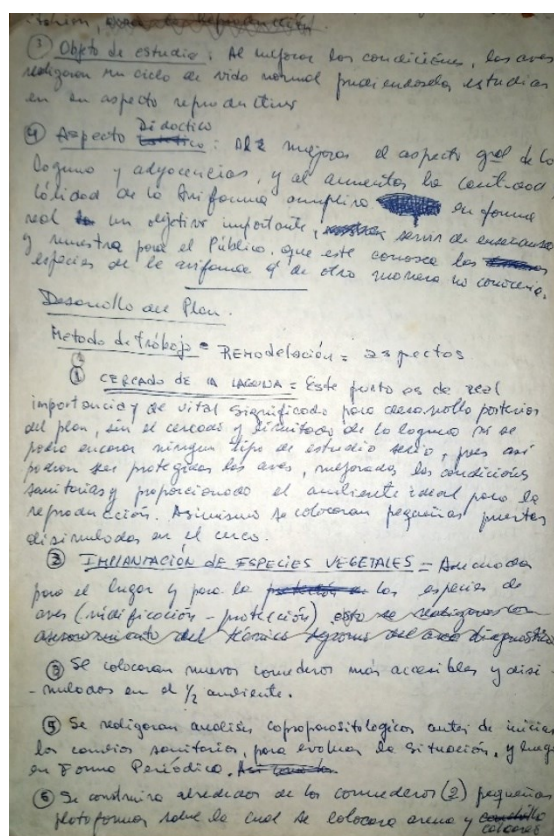 ③ Objeto de estudio: Al mejorar las condiciones, las aves
realizaran su ciclo de vida normal pudiendoselas estudiar
en su aspecto reproductivo
④ Aspecto Didactico: Al mejorar el aspecto gral de la
laguna y adyacencias, y al aumentar la cantidad
calidad de la Avifauna en forma
real un objetivo importante, servir de enseñanza
y muestra para el Público, que este conosca las
especies de la avifauna q de otra manera no conoceria.
Desarrollo del Plan.
Metodo de trabajo = REmodelación = aspectos
① CERCADO DE LA LAGUNA = Este punto es de real
importancia y de vital significado para desarrollo posterior
del plan, sin el cercado y de la laguna no se
podra encarar ningun tipo de estudio serio, pues asi
podran ser protegidas las aves, mejoradas las condiciones
sanitarias y proporcionado el ambiente ideal para la
reproducción. Asimismo se colocaran pequeñas puertas
disimuladas en el cerco.
② IMPLANTACIÓN DE ESPECIES VEGETALES = Adecuadas
para el lugar y para las especies de
aves (nidificación - protección) esto se realizara con
asesoramiento del tecnico del area diagnostico
③ Se colocaran nuevos comederos más accesibles y disi
-mulados en el 1/2 ambiente.
⑤ Se realizaran analisis coproparasitologicos antes de iniciar
los cambios sanitarios, para evaluar la situación, y luego
en Forma Periódica.
⑥ Se construira alrededor de los comederos (2) pequeñas
plataformas sobre la cual se colocara arena y